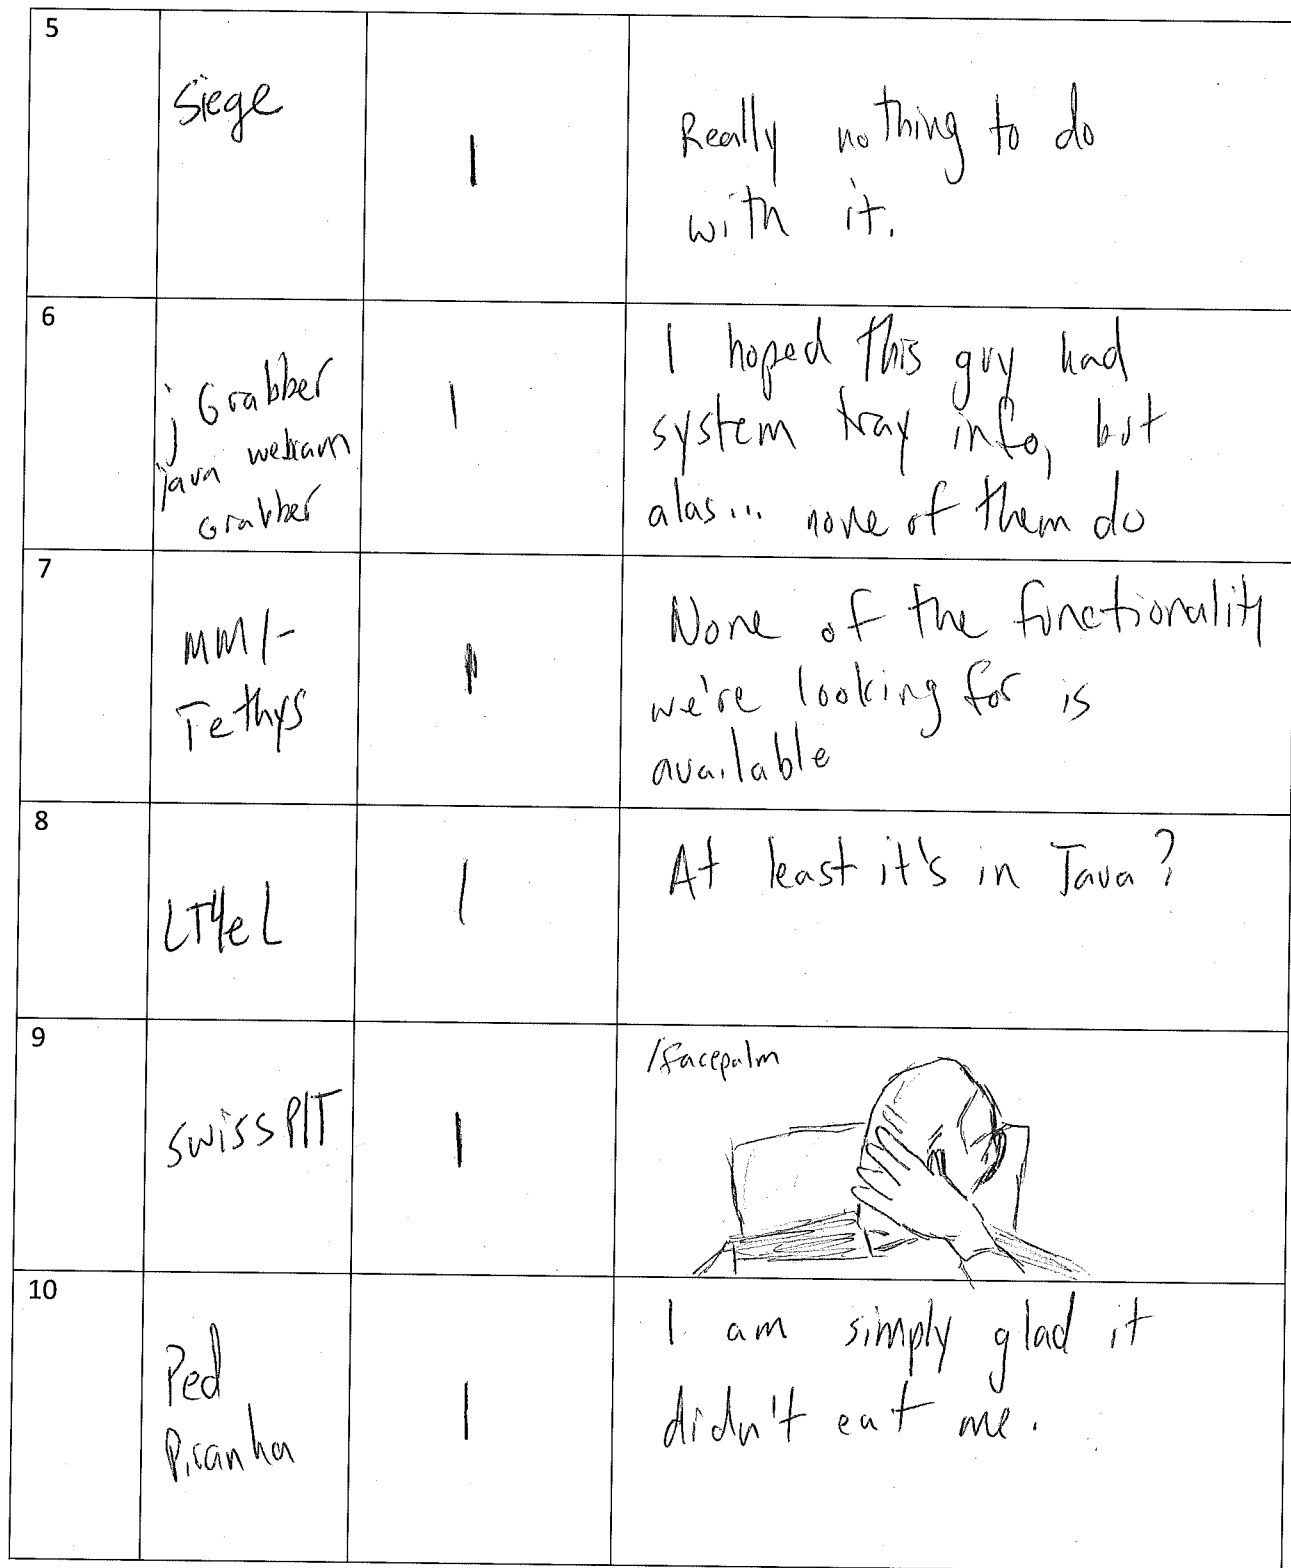 5
Siege
1
Really nothing to do
with it.
6
jGrabber
java webcam
Grabber
1
I hoped this guy had
system tray info, but
alas... none of them do
7
MM1-
Tethys
1
None of the functionality
we're looking for is
available
8
LT4eL
1
At least it's in Java?
9
swissPIT
1
/facepalm
10
Ped
Piranha
1
I am simply glad it
didn't eat me.